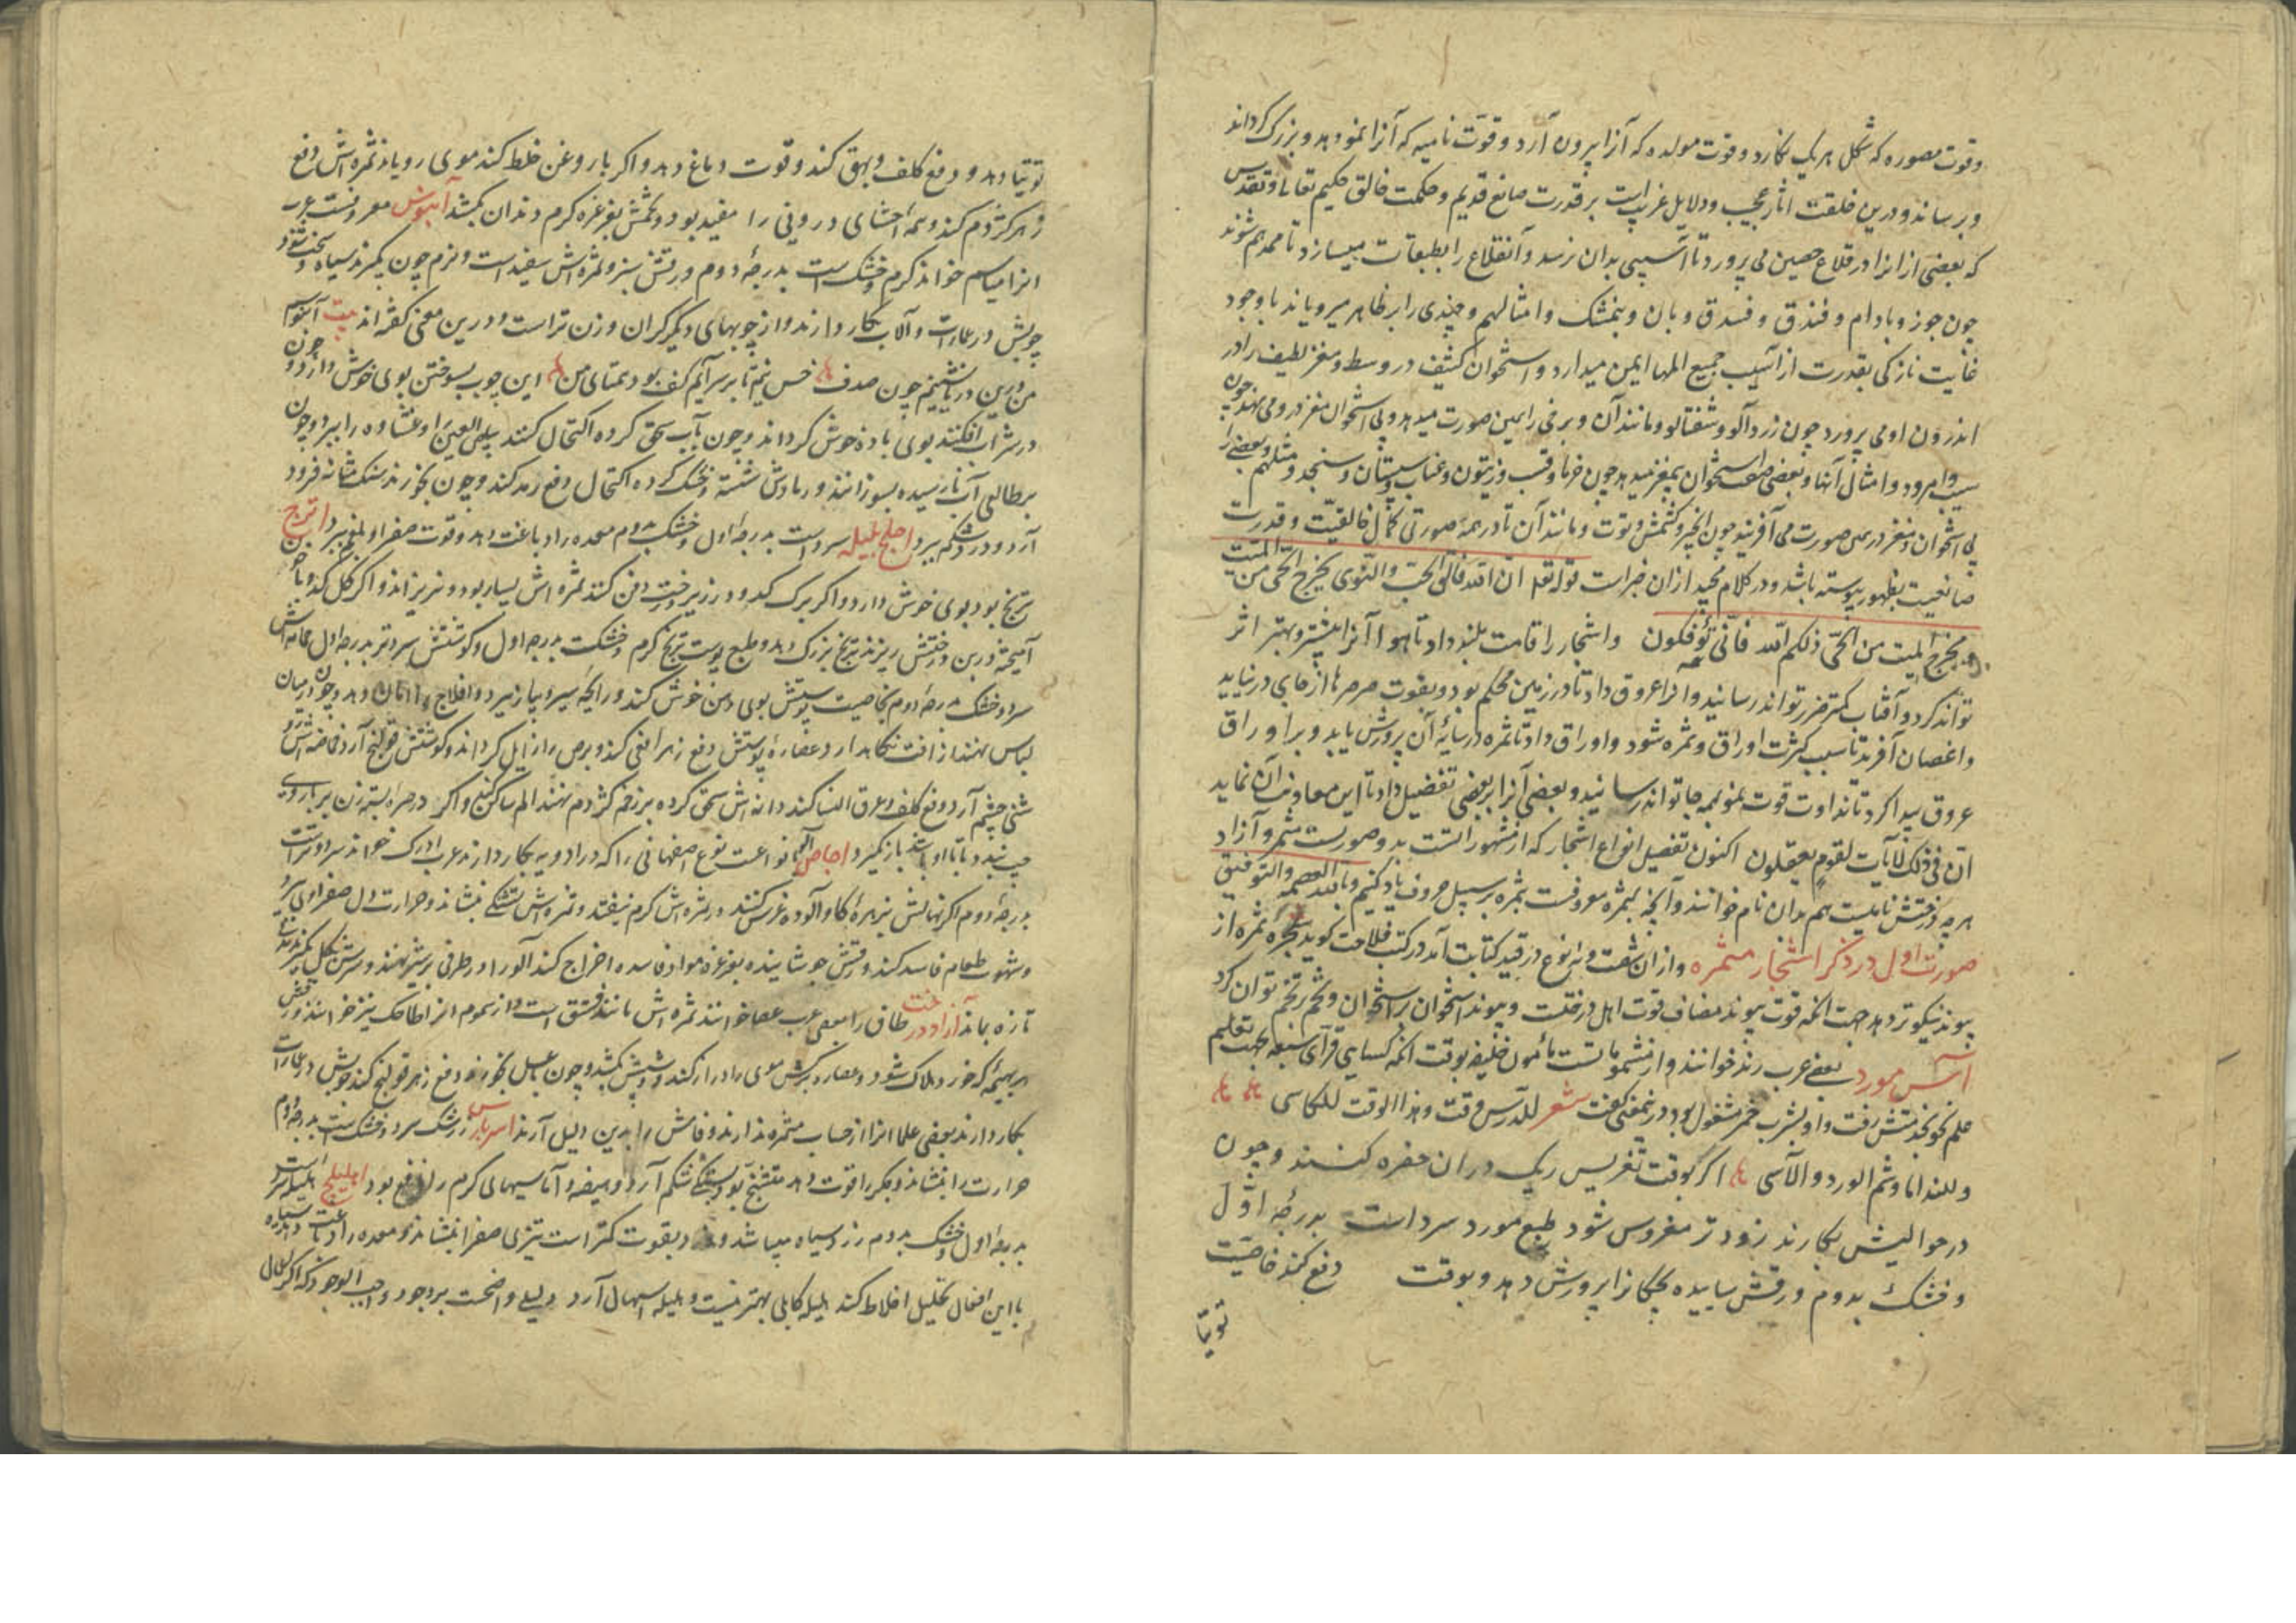 وقوت مصوره که شکل هر یک نکارد وقوت مولده که آنرا بیرون آرد وقوت نامیه که آنرا نمو دهد و بزرک کرداند
و برساند و درین خلقت اثار عجیب ودلایل غریب است بر قدرت صانع قدیم وحکمت خالق حکیم تعالی وتقدس
که بعضی از انرا در قلاع حصین می پرورد تا آسیبی بدان نرسد وآن قلاع را بطبقات میسازد تا محمد هم شوند
چون جوز وبادام و فندق و فسدق وبان و بنمشک وامثالهم و چندی را بر ظاهر میرویاند با وجود
غایت نازکی بقدرت از آسیب جمیع المها ایمن میدارد و استخوان کثیف در وسط ومغز لطیف را در
اندرون او می پرورد چون زردآلو وشفتالو ومانند آن وبرخی را همین صورت میدهد وبی استخوان مغز درو می نهد چون
سیب وامرود وامثال آنها وبعضی استخوان بیمغز میدهد چون خرما وقسب وزیتون وعناب وسپستان وسنجد ومثلهم وبعضی را
بی استخوان ومغز درین صورت می آفریند چون انجیر وکشمش وتوت ومانند آن تا در همه صورتی کمال خالقیت وقدرت
صانعیت بظهور پیوسته باشد ودر کلام مجید ازان خبر است قوله تعالی ان الله فالق الحب والنوی یخرج الحی من المیت
ومخرج المیت من الحی ذلکم الله فانی تؤفکون واشجار را قامت بلند داد تا هوا آنرا بیشتر وبهتر اثر
تواند کرد و آفتاب کمتر ضرر تواند رسانید و او را عروق داد تا در زمین محکم بود وبقوت صرصرها از جای در نیاید
واغصان آفرید تا سبب کثرت اوراق وثمره شود واوراق داد تا ثمره در سایه آن پرورش یابد وبر اوراق
عروق پیدا کرد تا نداوت قوت نمو بهمه جا تواند رسانید وبعضی آنرا بر بعضی تفضیل داد تا این معاونت آن نماید
ان فی ذلک لآیات لقوم یعقلون اکنون تفصیل انواع اشجار که از مشهوراتست بدو صورتست مثمر و آزاد
هرچه درختش نامیست هم بدان نام خوانند وآنچه بثمره معروفست بثمره بر سبیل حروف یاد کنیم وبالله العصمه والتوفیق
صورت اول در ذکر اشجار مثمره وازان شصت و نوع در قید کتابت آمد در کتب فلاحت کوید شجره ثمره از
پیوند نیکوتر دهد جهت آنکه قوت پیوند مضاف قوت اهل درختست وپیوند استخوان بر استخوان وتخم بر تخم توان کرد
آس مورد بعضی عرب رند خوانند واز مشموماتست مأمون خلیفه بوقت آنکه کسایی قرآی سبعه بجهت تعلیم
علم نحو بخدمتش رفت واو بشرب خمر مشغول بود درینمعنی کفت شعر للدرس وقت وهذا الوقت للکاسی
وللندامی وشم الورد والآسی اکر بوقت تغریس ریک دران حفره کنند وچون
در حوالیش بکارند زودتر مغروس شود طبع مورد سرد است بدرجهٔ اول
وخشک بدوم ورقش ساییده بچکانرا پرورش دهد وبوقت دفع کند خاصیت
توتیا
توتیا دهد و دفع کلف وبهق کند وقوت دماغ دهد واکر با روغن خلط کند موی رویاند ثمره اش دفع
زهر کژدم کند وهمه احشای درونی را مفید بود وتخمش بغرغره کرم دندان بکشد آبنوس معروفست عرب
انرا میاسم خوانند کرم وخشک است بدرجهٔ دوم ورقش سبز وثمره اش سفید است ونرم چون بکیرند سیاه وسخت شود
چوبش در عمارات وآلات بکار دارند واز چوبهای دیکر کران وزن تر است ودرین معنی کفته اند بیت آبنوسم
من ودرین دریا نشینم چون صدف خس نیم تا بر سر آیم کف بود همتای من این چوب بسوختن بوی خوش دارد و چون
در شراب افکنند بوی باده خوش کرداند وچون بآب سحق کرده اکتحال کنند بیاض العین وغشاوه را ببرد وچون
بر طالعی آب نارسیده بسوزانند ورمادش شسته وخشک کرده اکتحال دفع رمد کند وچون بخورند سنک مثانه فرود
آرد ودرد شکم ببرد اجلج بلیله سرد است بدرجه اول وخشک بدوم معده را دباغت دهد وقوت صفرا وبلغم ببرد اترج
ترنج بود بوی خوش دارد واکر برک کدو در زیر درخت دفن کنند ثمره اش بسیار بود ونریزاند واکر کل کدو با خون
آمیخته در بن درختش ریزند ترنج بزرک دهد وطبع پوست ترنج کرم وخشکست بدرجه اول وکوشتش سرد وتر بدرجه اول حماضش
سرد وخشک بدرجهٔ دوم بخاصیت پوستش بوی دهن خوش کند ورایحهٔ سیر وپیاز ببرد وافلاج را امان دهد وچون درمیان
لباس نهند از آفت نکاهدارد عصارهٔ پوستش دفع زهر افعی کند وبرص را زایل کرداند وکوشتش قولنج آرد حماضش
شی چشم آرد ودفع کلف وعرق النسا کند دانه اش سحق کرده بر زخم کژدم نهند الم ساکن کند واکر در صره بسته زن بر بازوی
چپ بندد تا با او باشد بار نکیرد اجاص آلو انواعست نوع اصفهانی را که در ادویه بکار دارند عرب ادرک خوانند سرد وترست
بدرجهٔ دوم اکر نهالش بزهرهٔ کاو آلوده غرس کنند در ثمره اش کرم نیفتد وثمره اش تشنکی بنشاند وحرارت دل صفراوی ببرد
وشهوت طعام فاسد کند ورقش جوشانیده بغرغره مواد فاسده اخراج کند آلو را در ظرفی بر شیر نهند وسرش بکل بکیرند
تازه بماند آزاد درخت طاق را بعضی عرب عصا خوانند ثمره اش مانند فستق است واز سموم انرا طاحک نیز خوانند ورقش
هر بهیمهٔ که خورد هلاک شود وعصارهٔ برکش موی را دراز کند وشپش بکشد وچون بعسل بخورند دفع زهر وقولنج کند چوبش در عمارات
بکار دارند بعضی علما انرا از حساب مثمره ندارند و بدین دلیل آرند امبرباریس زرشک سرد وخشک است بدرجه دوم
حرارت را بنشاند وجکر را قوت دهد شکم آرد وهیضه وآماسهای کرم را نافع بود اهلیلج هلیله سرد است
بدرجه اول وخشک بدوم زرد وسیاه میباشد و بقوت کمتر است تیزی صفرا بنشاند ومعده را دباغت دهد سیاه
با این افعال تحلیل اخلاط کند هلیله کابلی بهتر نیست وهلیله اسهال آرد دلیلی واضحست بر وجود واجب الوجود که اکر کمال